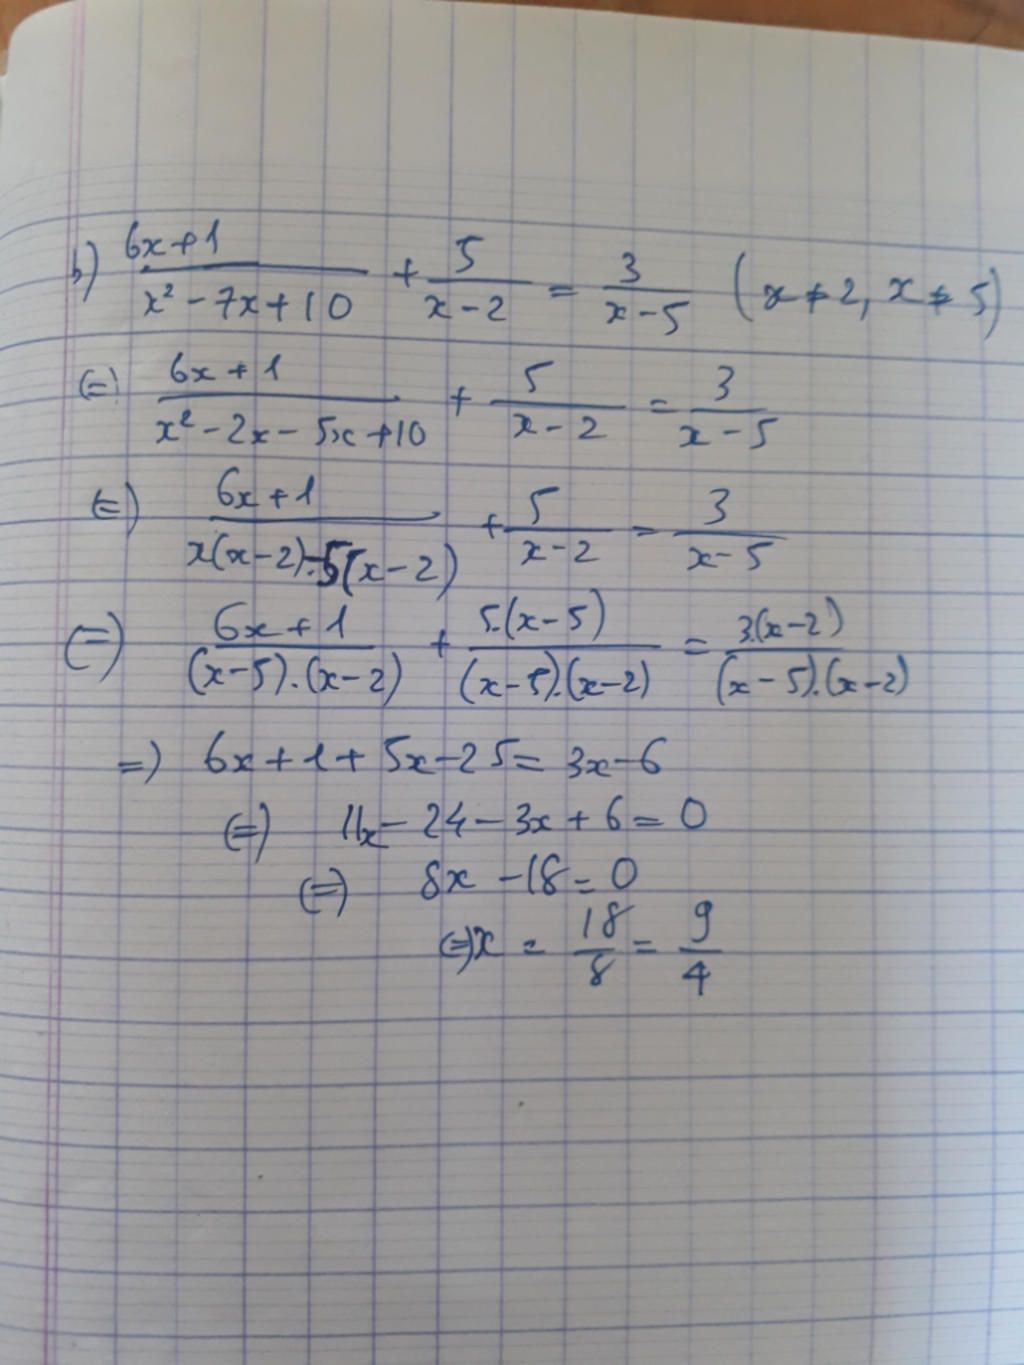 b) \frac{6x+1}{x² - 7x + 10} + \frac{5}{x-2} = \frac{3}{x-5} (x ≠ 2, x ≠ 5)
(=) \frac{6x+1}{x² - 2x - 5x + 10} + \frac{5}{x-2} = \frac{3}{x-5}
(=) \frac{6x+1}{x(x-2) - 5(x-2)} + \frac{5}{x-2} = \frac{3}{x-5}
(=) \frac{6x+1}{(x-5).(x-2)} + \frac{5.(x-5)}{(x-5).(x-2)} = \frac{3.(x-2)}{(x-5).(x-2)}
=) 6x + 1 + 5x - 25 = 3x - 6
(=) 11x - 24 - 3x + 6 = 0
(=) 8x - 18 = 0
(=) x = \frac{18}{8} = \frac{9}{4}